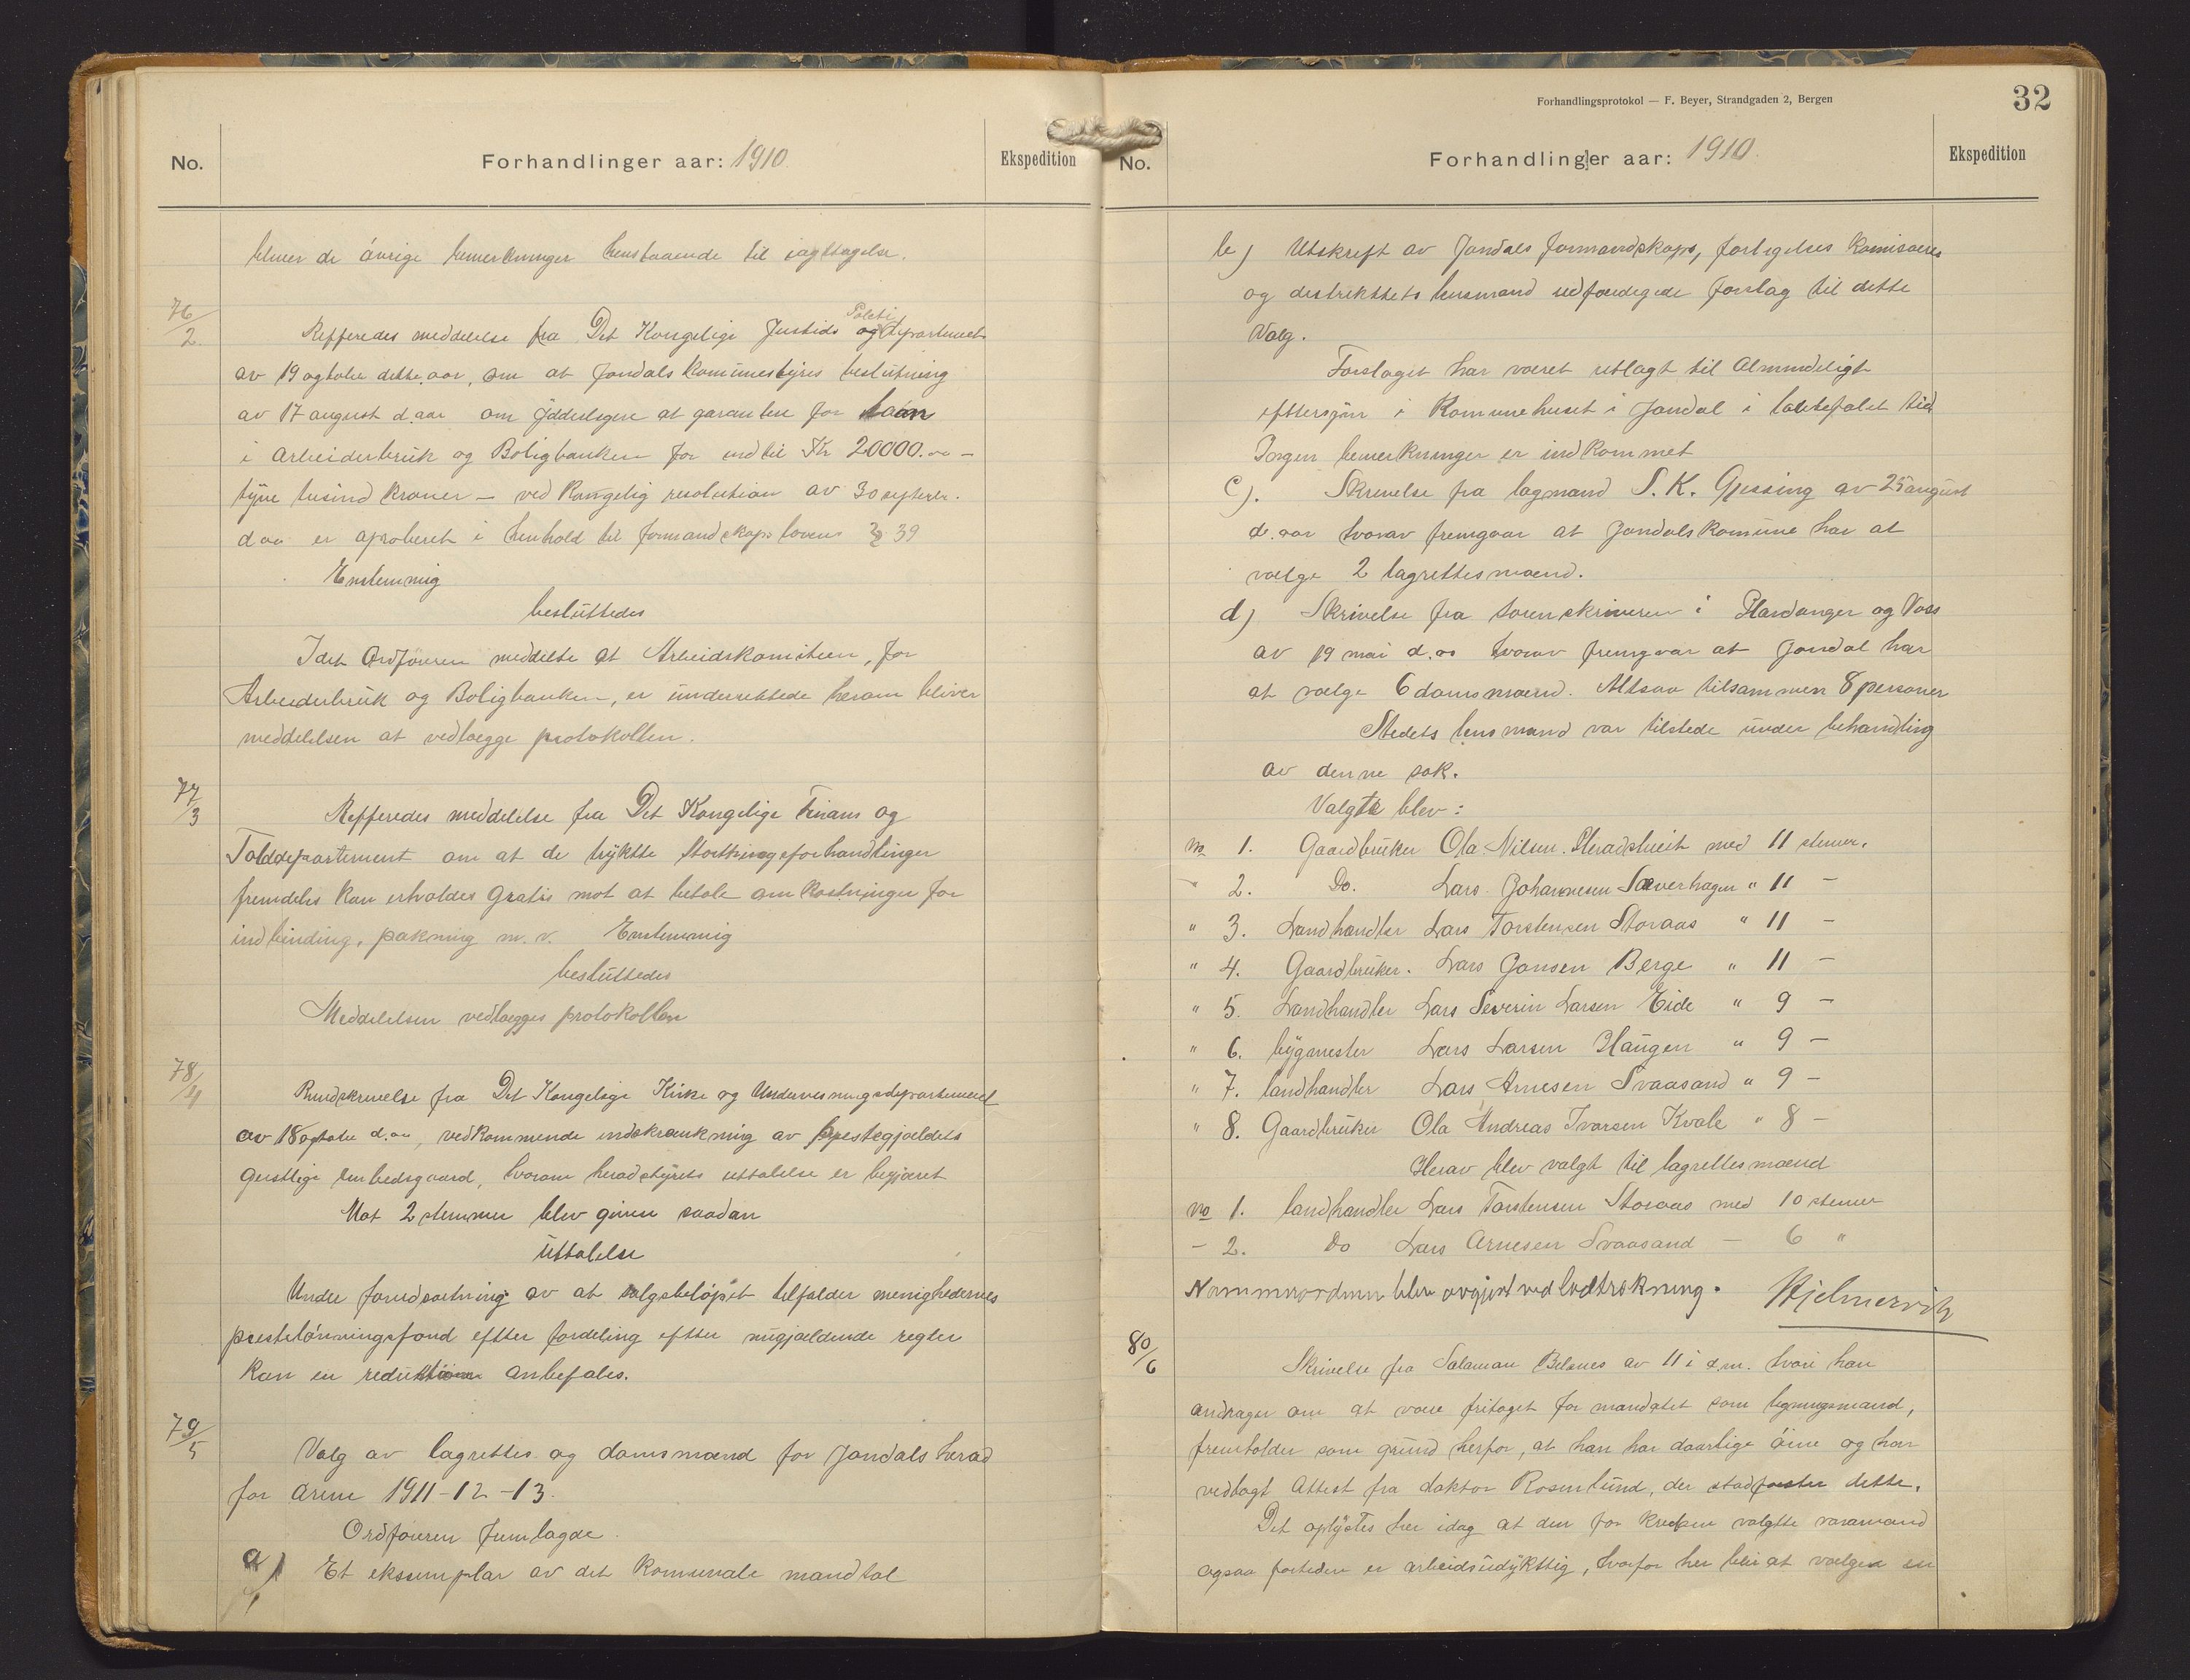 No.
Forhandlinger aar: 1910.
Ekspedition
bliver de övrige bemerkninger henstaaende til iagttagelse.
76/2.
Refferedes meddelelse fra Det Kongelige Justids og Politi departement
av 19 ogtober dette aar, om at Jondals Komunestyres beslutning
av 17 august d. aar om ydderligere at garantere for laan
i Arbeiderbruk og Boligbanken for indtil Kr 20000.oo –
tyve tusind kroner – ved Kongelig resolution av 30 septerbr.
d aa er aproberet i henhold til formandskaps lovens § 39
Enstemmig
besluttedes
Idet Ordföreren meddelte at Arbeidskomiteen, for
Arbeiderbruk og Boligbanken, er underrettede herom bliver
meddelelsen at vedlægge protokollen.
77/3
Refferedes meddelelse fra Det Kongelige Finans og
Tolddepartement om at de trykte Storthingsforhandlinger
fremdeles kan erholdes gratis mot at betale omkostninger for
indbinding, pakning m. v. Enstemmig
besluttedes
Meddelelsen vedlægges protokollen
78/4
Rundskrivelse fra Det Kongelige Kirke og Undervisningsdepartement
av 18 ogtober d. aa, vedkommende indskrænkning av prestegjældets
geistlige embedsgaard, hvorom heradstyrets uttalelse er begjæret
Mot 2 stemmer blev given saadan
uttalelse
Under forudsætning av at salgsbelöpet tilfalder menighedernes
presteönningsfond efter fordeling efter nugjældende regler
kan en reduktion anbefales.
79/5
Valg av lagrettes og domsmænd for Jondals herad
for arene 1911–12–13.
Ordföreren fremlagde
a) Et eksemplar av det Komunale mandtal
Forhandlingsprotokol — F. Beyer, Strandgaden 2, Bergen
32
No.
Forhandlinger aar: 1910.
Ekspedition
b) Utskrift av Jondals formandskaps, forligelses Komisaeres
og destrikttets lensmand udfærdigede forslag til dette
Valg.
Forslaget har været utlagt til Almindeligt
eftersyn i Komunehuset i Jondal i lovbefalet tid
Ingen bemerkninger er indkommet
c). Skrivelse fra lagmand S. K. Gjessing av 25 august
d. aar hvorav fremgaar at Jondals komune har at
vælge 2 lagrettesmænd.
d) Skrivelse fra sorenskriveren i Hardanger og Voss
av 19 mai d. aa hvorav fremgaar at Jondal har
at vælge 6 domsmænd. Altsaa tilsammen 8 personer
Stedets lensmand var tilstede under behandling
av denne sak.
Valgte blev:
No 1. Gaardbruker Ola Nilsen Heradstveit med 11 stemer.
" 2. Do. Lars Johannesen Sæverhagen " 11 –
" 3. Landhandler Lars Torstensen Storaas " 11 –
" 4. Gaardbruker. Lars Jonsen Berge " 11 –
" 5. Landhandler Lars Severin Larsen Eide " 9 –
" 6. bygmester Lars Larsen Haugen " 9 –
" 7. landhandler Lars Arnesen Svaasand " 9 –
" 8. Gaardbruker Ola Andreas Ivarsen Kvale " 8 –
Herav blev valgt til lagrettesmænd
No 1. landhandler Lars Torstensen Storaas med 10 stemer
– 2. Do Lars Arnesen Svaasand – 6 "
Nummerordenen blev avgjort ved lodtrækning. Hjelmervik
80/6
Skrivelse fra Salaman Belsnes av 11 i d.m. hvori han
andrager om at være fritaget for mandatet som ligningsmand,
fremholder som grund herfor, at han har daarlige öine og har
vedlagt Attest fra doktor Rosenlund, der stadfæster dette.
Det oplystes her idag at den for kredsen valgte varamand
ogsaa fortiden er arbeidsudyktig, hvorfor her blir at vælges en